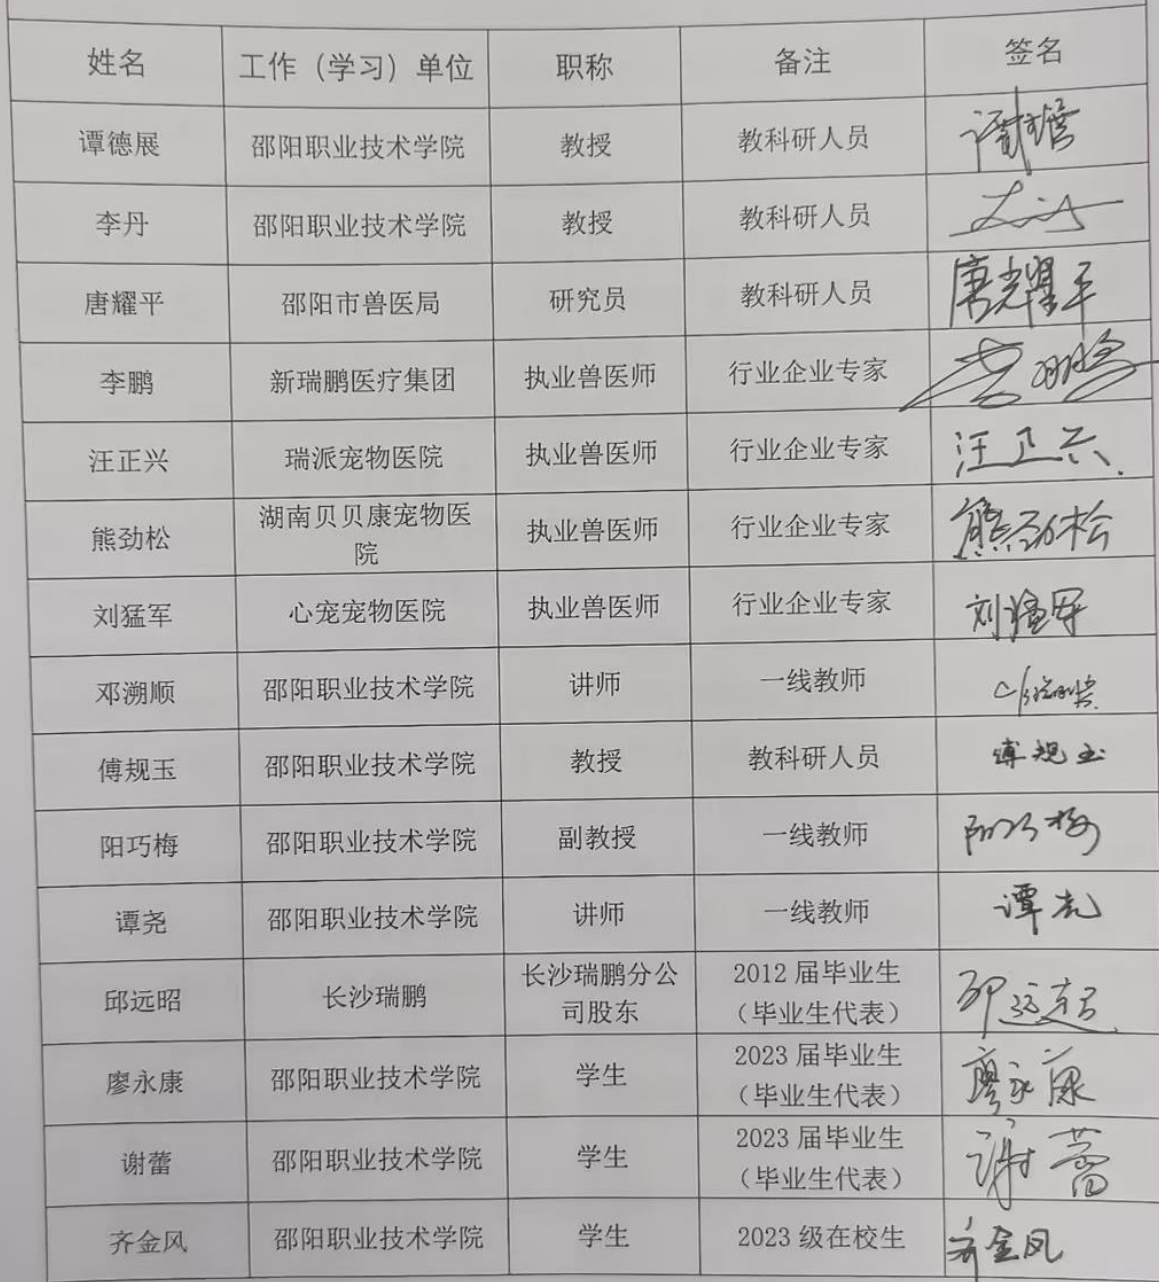 姓名 工作（学习）单位 职称 备注 签名
谭德展 邵阳职业技术学院 教授 教科研人员
李丹 邵阳职业技术学院 教授 教科研人员
唐耀平 邵阳市兽医局 研究员 教科研人员 唐耀平
李鹏 新瑞鹏医疗集团 执业兽医师 行业企业专家 李鹏
汪正兴 瑞派宠物医院 执业兽医师 行业企业专家 汪正兴
熊劲松 湖南贝贝康宠物医院 执业兽医师 行业企业专家 熊劲松
刘猛军 心宠宠物医院 执业兽医师 行业企业专家 刘猛军
邓溯顺 邵阳职业技术学院 讲师 一线教师
傅规玉 邵阳职业技术学院 教授 教科研人员 傅规玉
阳巧梅 邵阳职业技术学院 副教授 一线教师 阳巧梅
谭尧 邵阳职业技术学院 讲师 一线教师 谭尧
邱远昭 长沙瑞鹏 长沙瑞鹏分公司股东 2012 届毕业生（毕业生代表）
廖永康 邵阳职业技术学院 学生 2023 届毕业生（毕业生代表） 廖永康
谢蕾 邵阳职业技术学院 学生 2023 届毕业生（毕业生代表） 谢蕾
齐金风 邵阳职业技术学院 学生 2023 级在校生 齐金风